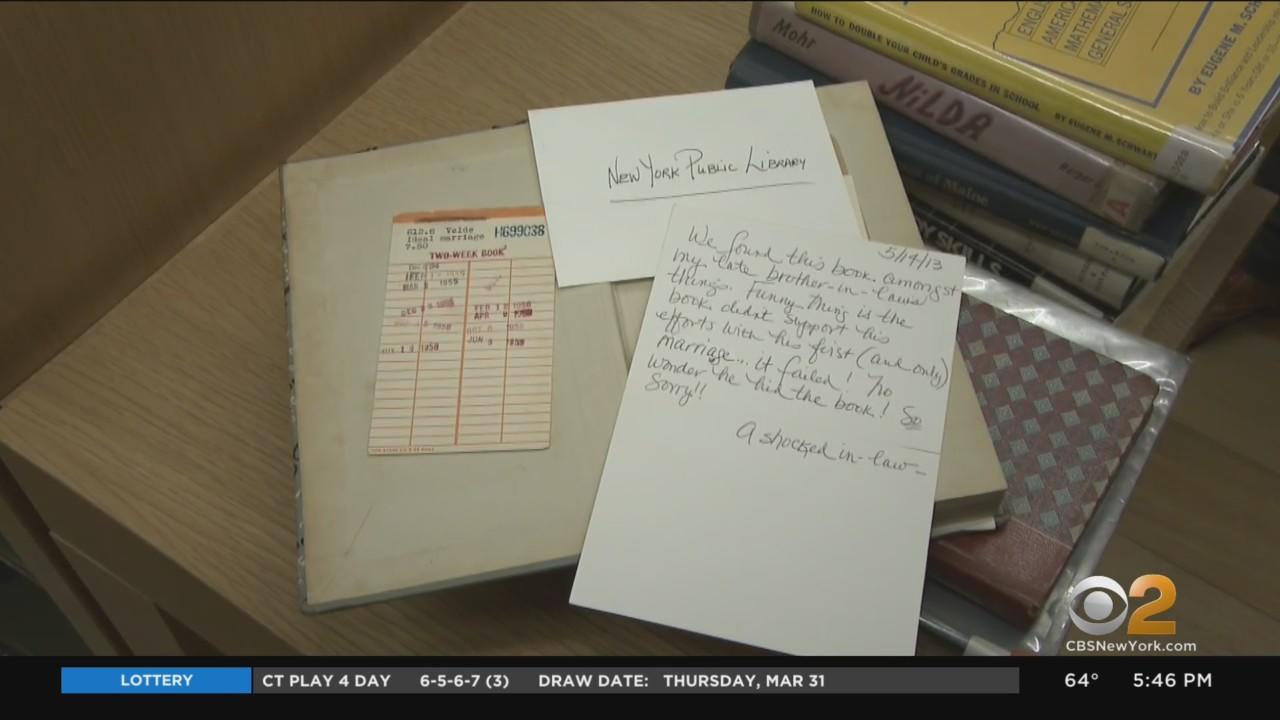 HOW TO DOUBLE YOUR CHILD'S GRADES IN SCHOOL
BY EUGENE M. SCHWART
BY EUGENE M. SCH
ENGLI
AMERICA
MATHEMA
GENERAL S
Mohr
NILDA
A
of Maine
Y SKILLS
NEW YORK PUBLIC LIBRARY
612.6 Velde
Ideal marriage
7.50
H699038
TWO-WEEK BOOK
5/14/13
We found this book amongst
my late brother-in-laws
things. Funny thing is the
book didn't support his
efforts with his first (and only)
marriage... it failed! No
wonder he hid the book! So
Sorry!!
A shocked in-law
2
CBSNewYork.com
LOTTERY
CT PLAY 4 DAY 6-5-6-7 (3) DRAW DATE: THURSDAY, MAR 31
64° 5:46 PM